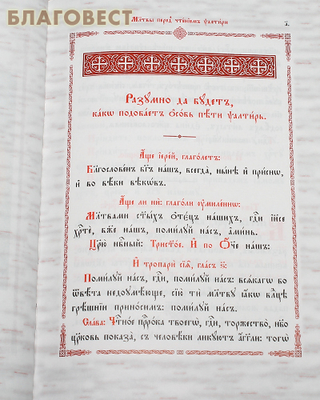 БЛАГОВЕСТ
Мл҃твы пере́дъ чте́нїемъ ѱалти́ри
Разꙋ́мно да бꙋ́детъ,
ка́кѡ подоба́етъ ѻ҆со́бь пѣ́ти ѱалти́рь.
А҆́ще і҆ере́й, глаго́летъ:
Благослове́нъ бг҃ъ на́шъ, всегда̀, ны́нѣ и҆ при́снѡ,
и҆ во вѣ́ки вѣкѡ́въ.
А҆́ще ли нѝ: глаго́ли ᲂу҆миле́ннѡ:
Мл҃твами ст҃ы́хъ ѻ҆тє́цъ на́шихъ, гдⷭ҇и і҆и҃се
хрⷭ҇тѐ, бж҃е на́шъ, поми́лꙋй на́съ, а҆ми́нь.
Цр҃ю̀ нбⷭ҇ный: Трист҃о́е. И҆ по Ѻ҆́ч҃е на́шъ:
И҆ тропарѝ сїѧ̑, гла́съ ѕ҃:
Поми́лꙋй на́съ, гдⷭ҇и, поми́лꙋй на́съ: всѧ́кагѡ бо
ѿвѣ́та недоꙋмѣ́юще, сїю́ ти мл҃твꙋ ꙗ҆́кѡ влⷣцѣ
грѣ́шнїи прино́симъ: поми́лꙋй на́съ.
Сла́ва: Чтⷭ҇но́е прⷪ҇ро́ка твоегѡ̀, гдⷭ҇и, торжество̀, нб҃о
цр҃ковь показа̀, съ человѣ̑ки ликꙋ́ютъ а҆́гг҃ли: тогѡ̀